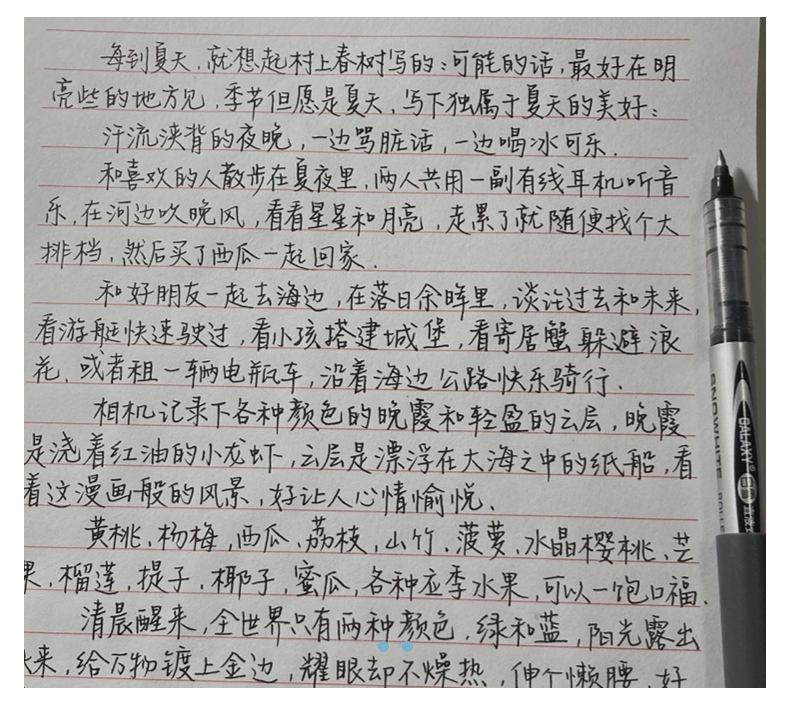 每到夏天,就想起村上春树写的:可能的话,最好在明
亮些的地方见,季节但愿是夏天,写下独属于夏天的美好:
汗流浃背的夜晚,一边骂脏话,一边喝冰可乐.
和喜欢的人散步在夏夜里,两人共用一副有线耳机听音
乐,在河边吹晚风,看看星星和月亮,走累了就随便找个大
排档,然后买了西瓜一起回家.
和好朋友一起去海边,在落日余晖里,谈论过去和未来,
看游艇快速驶过,看小孩搭建城堡,看寄居蟹躲避浪
花,或者租一辆电瓶车,沿着海边公路快乐骑行.
相机记录下各种颜色的晚霞和轻盈的云层,晚霞
是浇着红油的小龙虾,云层是漂浮在大海之中的纸船,看
着这漫画般的风景,好让人心情愉悦.
黄桃、杨梅,西瓜、荔枝,山竹、菠萝、水晶樱桃、芒
果,榴莲,提子,椰子,蜜瓜,各种应季水果,可以一饱口福.
清晨醒来,全世界只有两种颜色,绿和蓝,阳光露出
来,给万物镀上金边,耀眼却不燥热,伸个懒腰,好
SNOWHITE
GALAXY